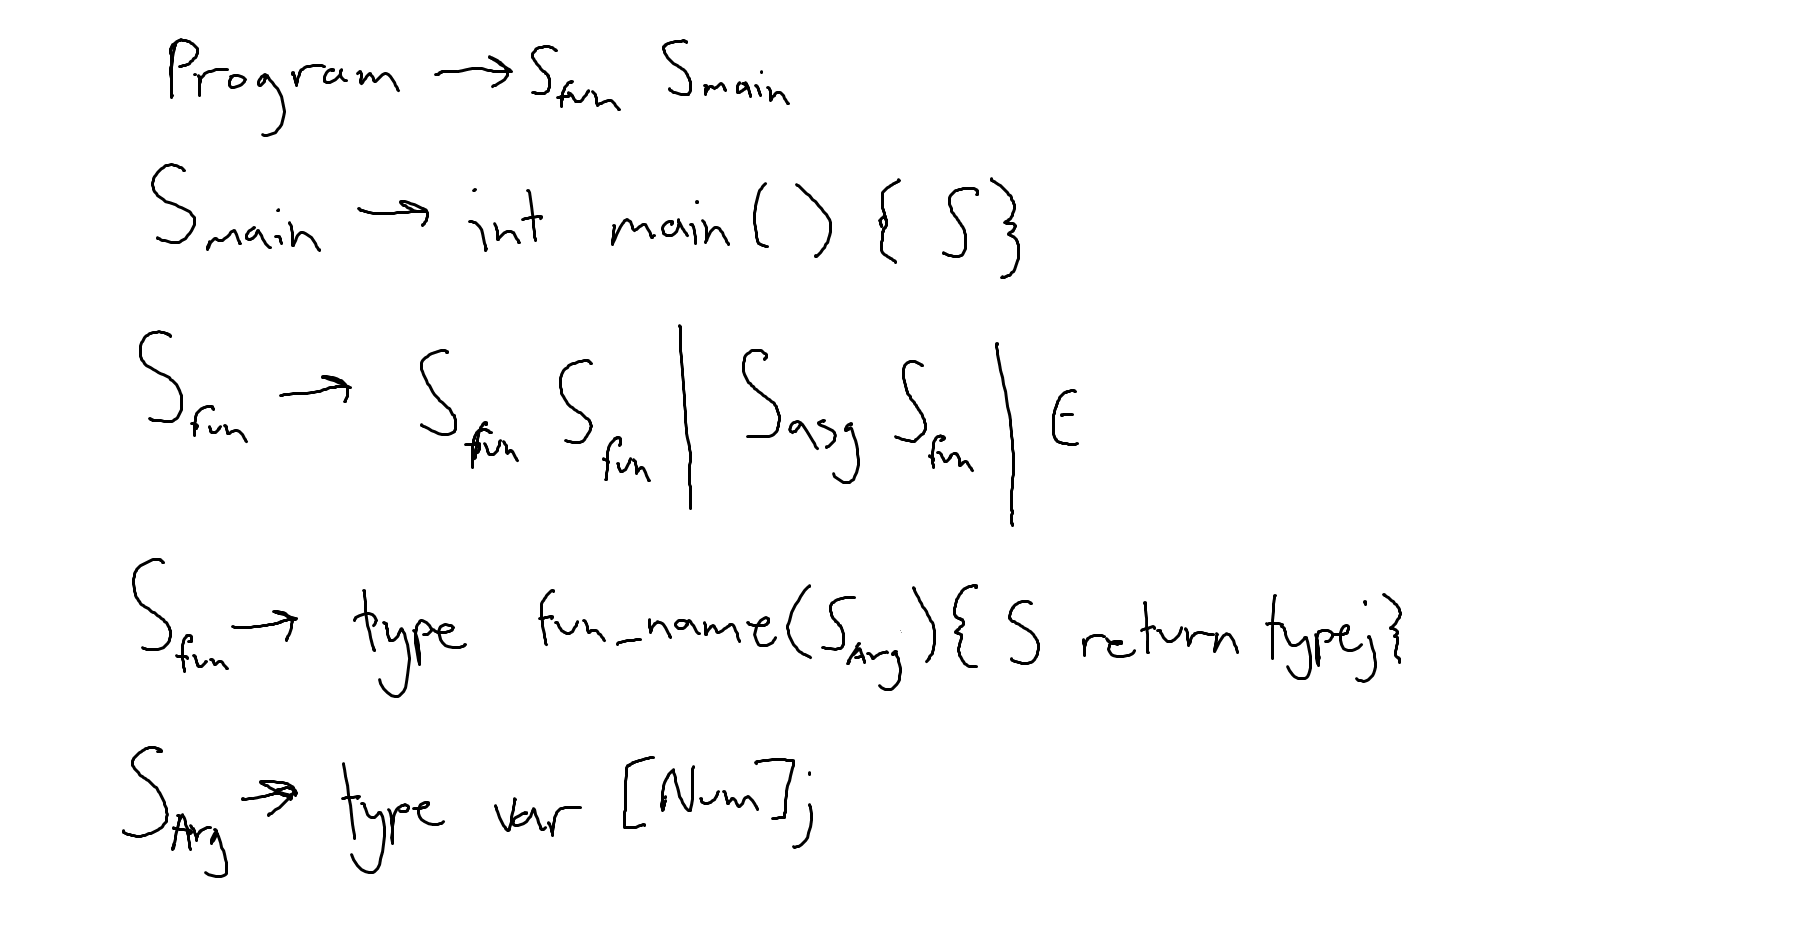 Program → S_fun S_main
S_main → int main() { S }
S_fun → S_fun S_fun | S_asg S_fun | ε
S_fun → type fun_name(S_Arg){ S return type;}
S_Arg → type var [Num];